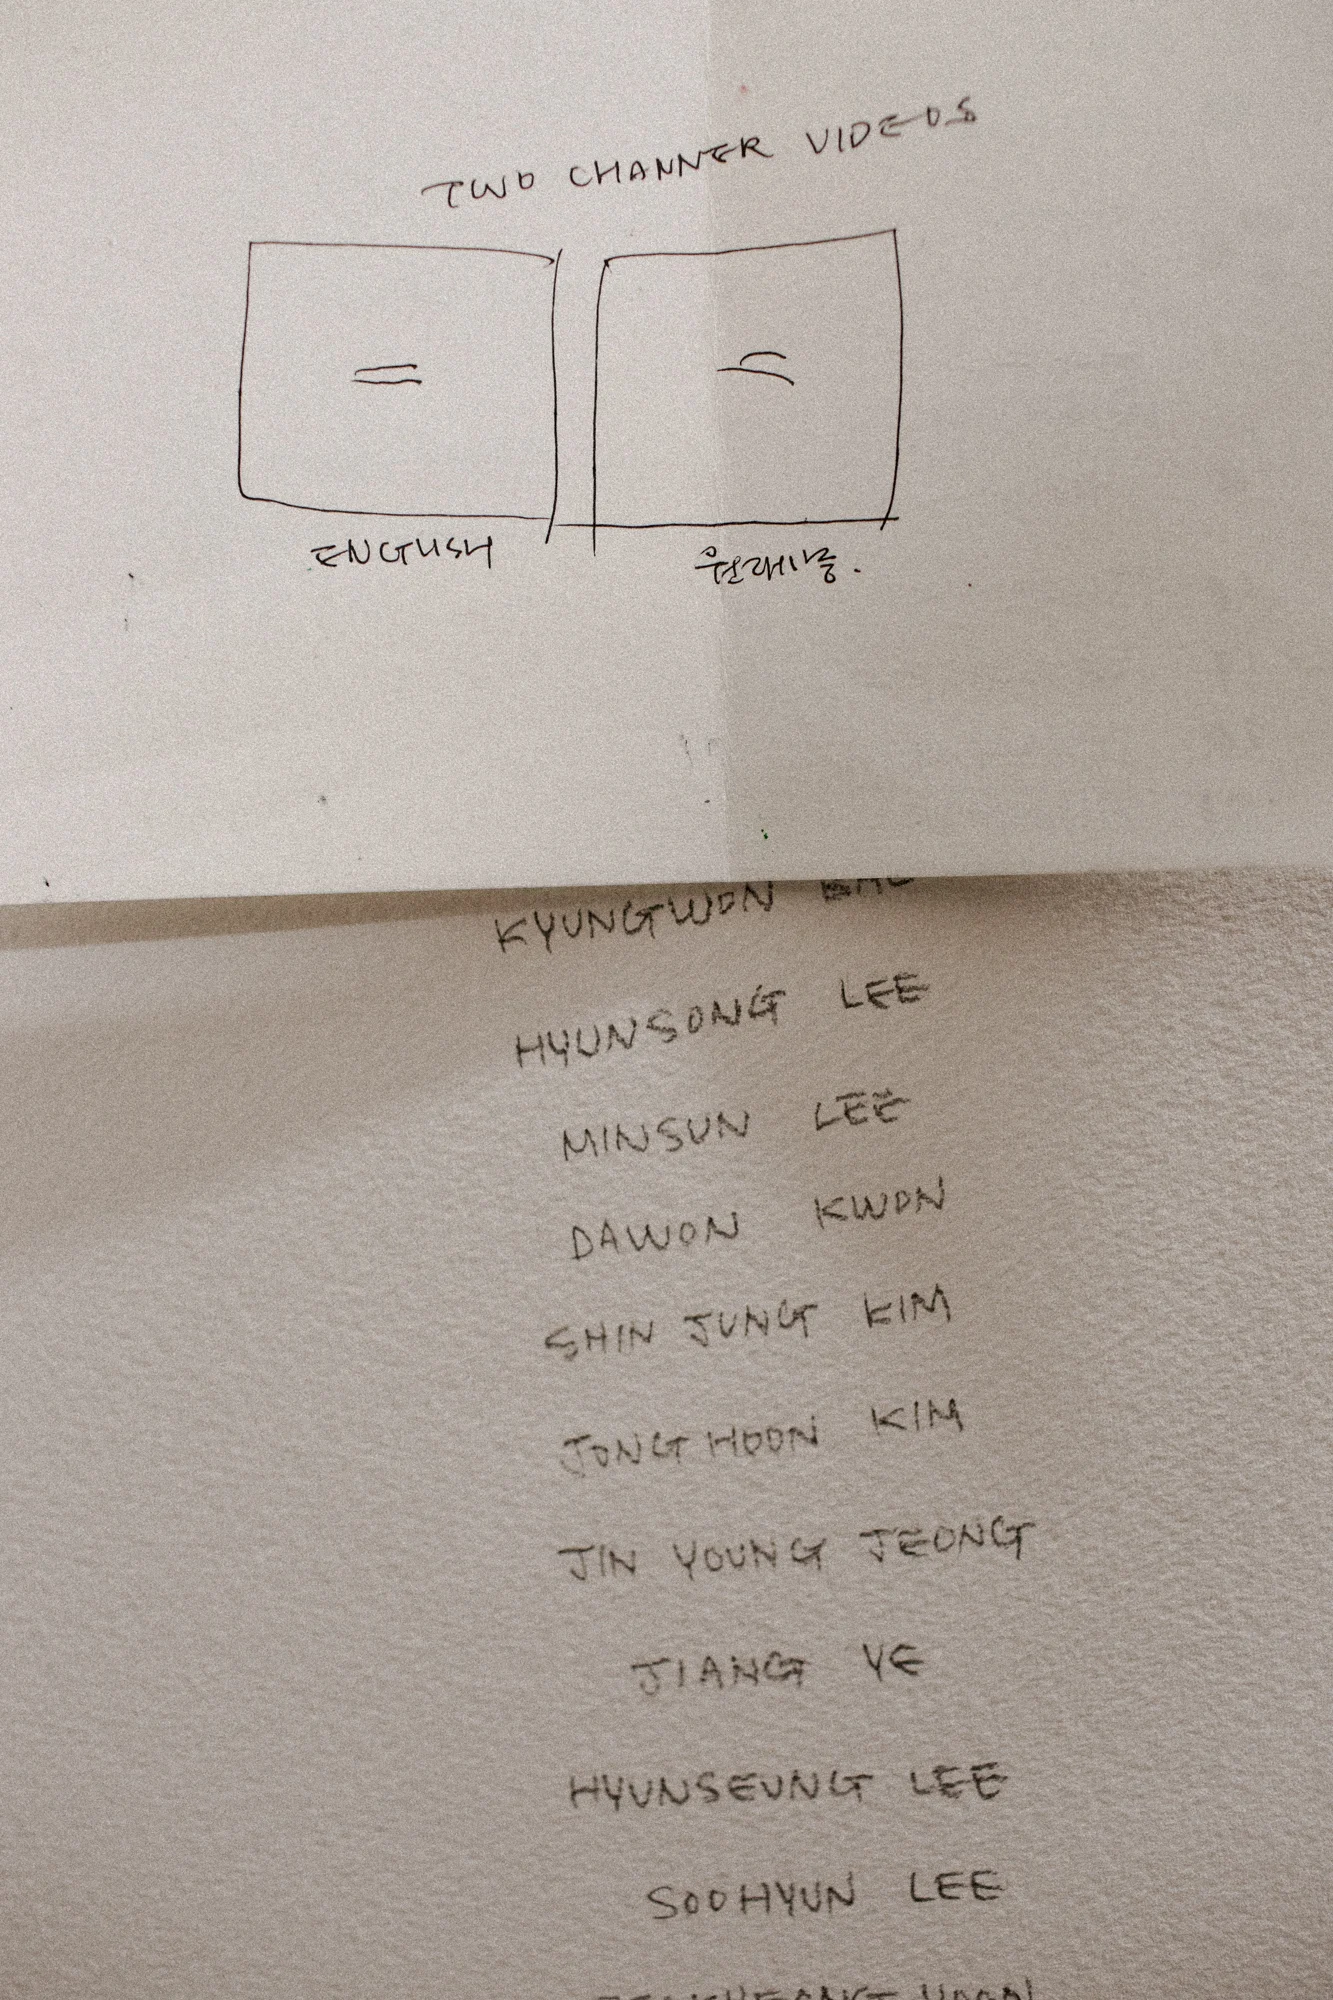 TWO CHANNER VIDEOS
ENGLISH
KYUNGTWON
HYUNSONG LEE
MINSUN LEE
DAWON KWON
SHIN JUNG KIM
JONG HOON KIM
JIN YOUNG JEONG
JIANG YE
HYUNSEUNG LEE
SOOHYUN LEE